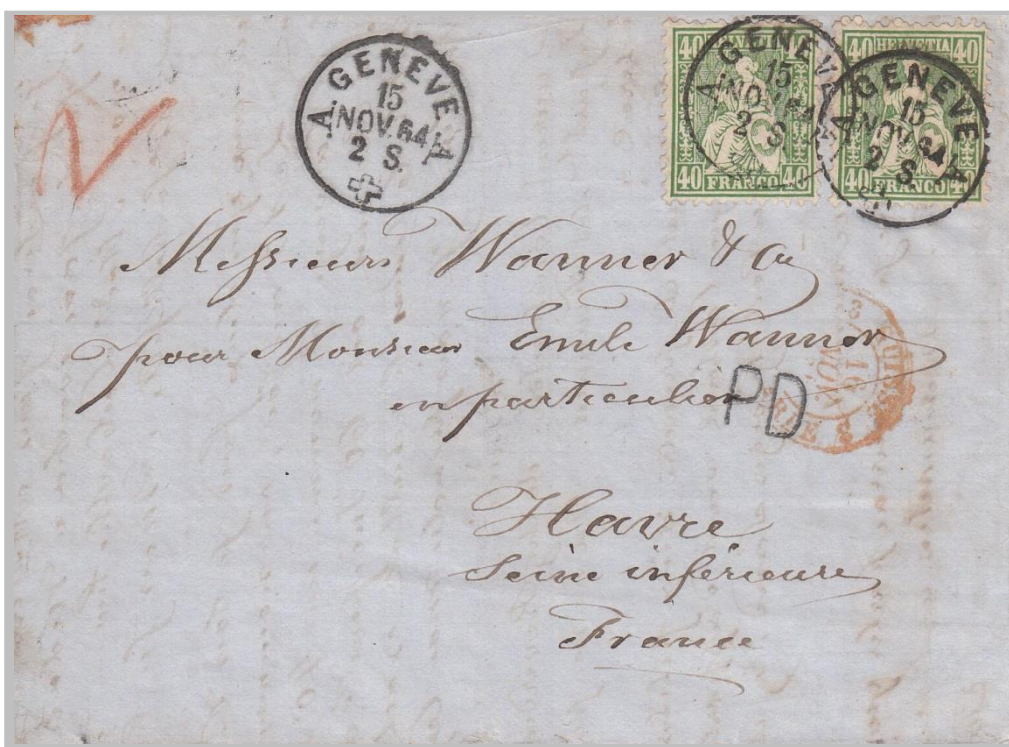 A GENEVE A
15
NOV. 64
2 S.
40 HELVETIA 40
40 FRANCO 40
A GENEVE A
15
NOV. 64
2 S.
40 HELVETIA 40
40 FRANCO 40
A GENEVE A
15
NOV. 64
2 S.
Messieurs Wanner & Co
pour Monsieur Emile Wanner
en particulier
PD
SUISSE
16
NOV.
3
Havre
Seine inférieure
France